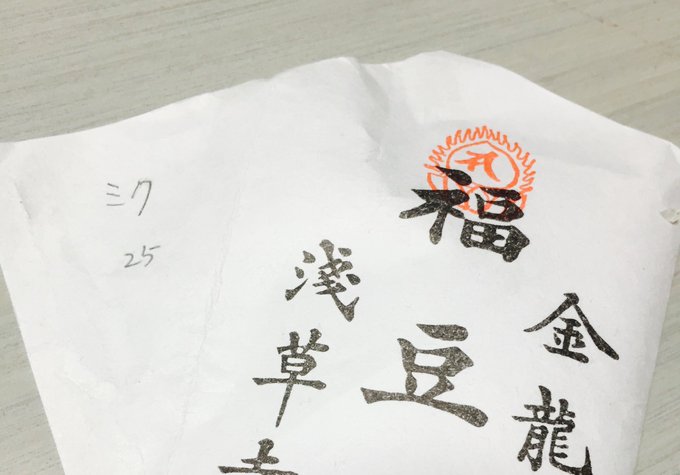 金龍
福豆
淺草
ミク
25